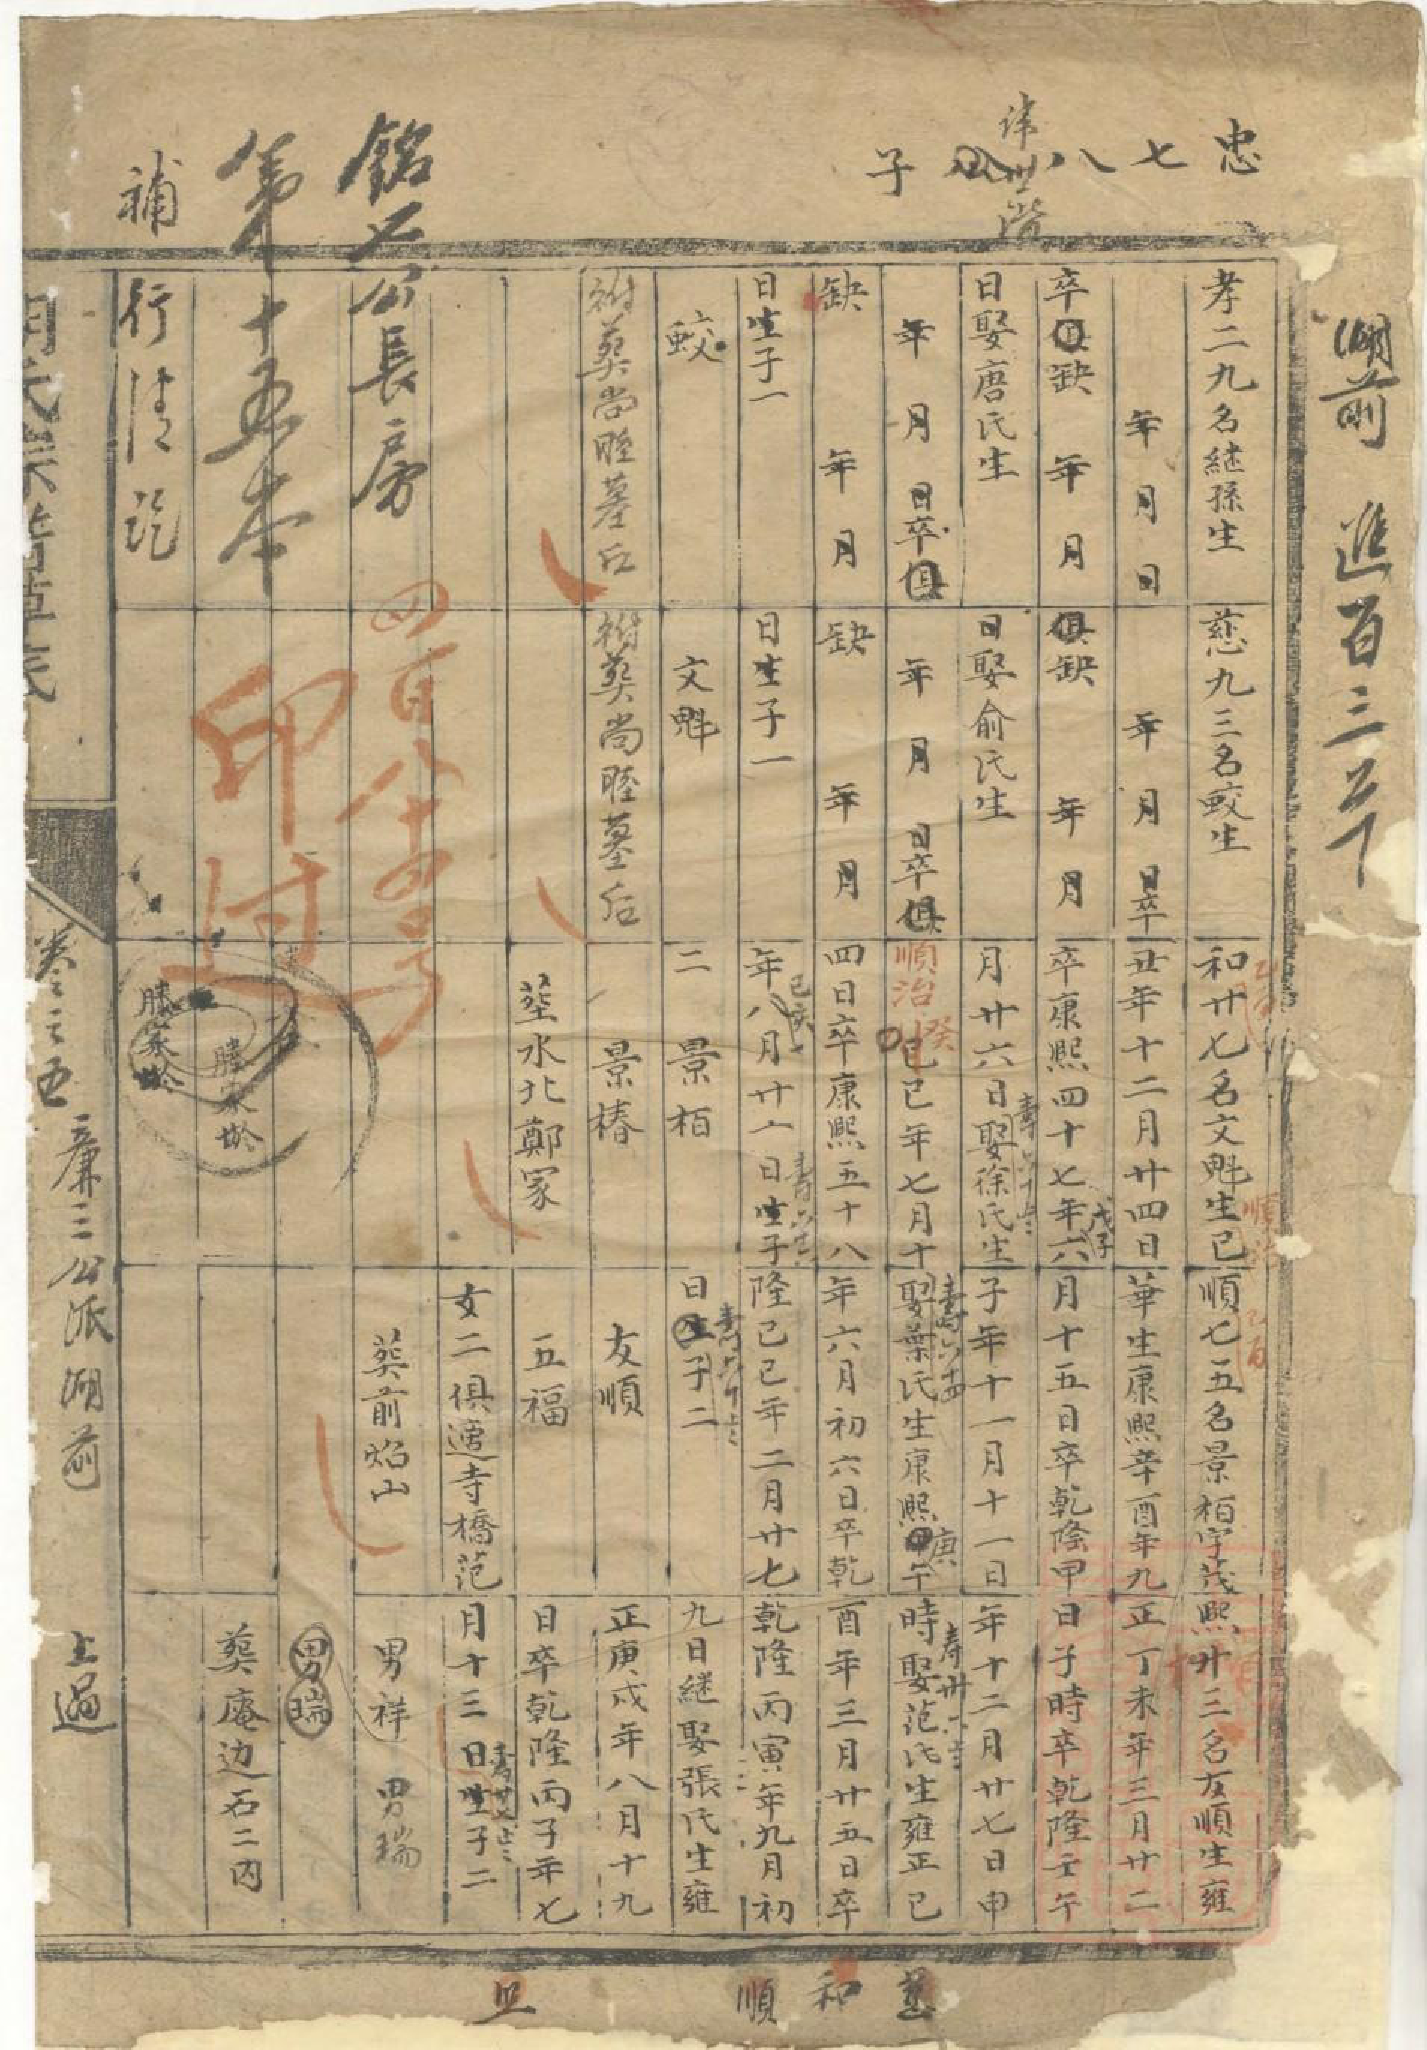 湖前 進百三六下
忠七八公子
諱世階
孝二九名継孫生
年 月 日
卒俱缺 年 月
日娶唐氏生
年 月 日卒俱
缺 年 月
日生子一
鮫
祔葬尚睦墓后
慈九三名鮫生
年 月 日卒
俱缺 年 月
日娶俞氏生
年 月 日卒俱
缺 年 月
日生子一
文魁
祔葬尚睦墓后
和廿七名文魁生已
丑年十二月廿四日
卒康熙四十七年六
戊子
月廿六日娶徐氏生
順治 癸
巳年七月十
四日卒康熙五十八
年八月廿一日生子
己亥
二 景栢
景椿
塟水北鄭家
順七五名景栢字茂
華生康熙辛酉年九
月十五日卒乾隆甲
子年十一月十一日
壽六十四
娶葉氏生康熙庚午
年六月初六日卒乾
隆己巳年二月廿七
日生子二
友順
五福
女二俱適寺橋范
葬前焰山
熙廿三名友順生雍
正丁未年三月廿二
日子時卒乾隆壬午
年十二月廿七日申
時娶范氏生雍正己
酉年三月廿五日卒
乾隆丙寅年九月初
九日継娶張氏生雍
正庚戌年八月十九
日卒乾隆丙子年七
月十三日生子二
男祥 男瑞
男瑞
葬庵边石二内
銘六公長房
第十五本
補
行清訖
四百八十四号
印过
塍家坽
塍家坽
卷之五
廉三公派湖前
上過
慈
和
順